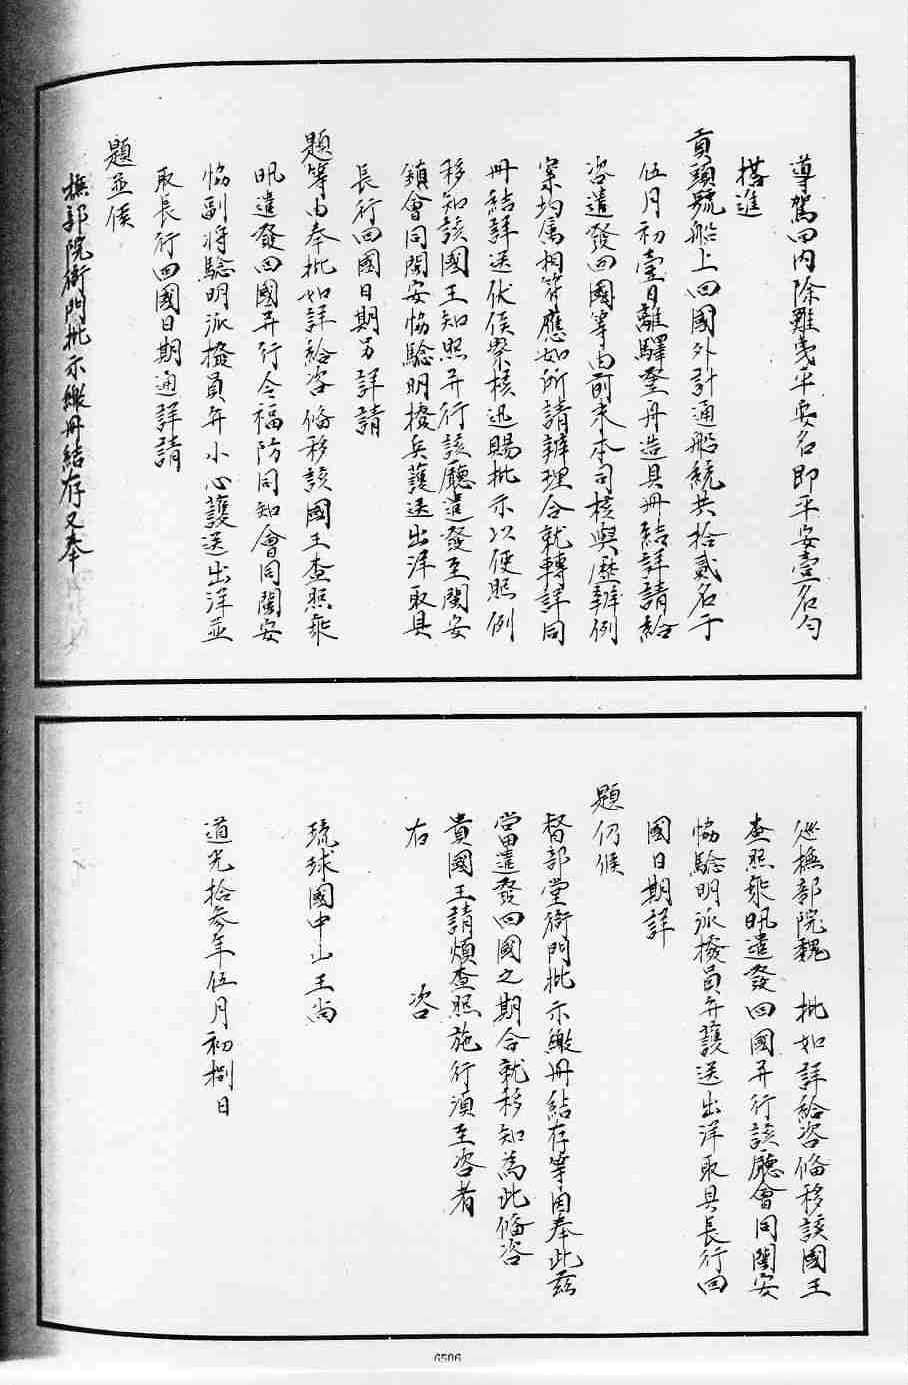 導駕回内除難夷平要名即平安壹名勻
搭進
貢頭號船上回國外計通船統共拾貳名于
伍月初壹日離驛登舟造具冊結詳請給
咨遣發回國等由前来本司核與歷辦例
案均属相符應如所請辦理合就轉詳同
冊結詳送伏候察核迅賜批示以便照例
移知該國王知照并行該廳遣發至閩安
鎮會同閩安協驗明撥兵護送出洋取具
長行回國日期另詳請
題等由奉批如詳給咨備移該國王查照飭
吼遣發回國并行令福防同知會同閩安
協副将驗明派撥員弁小心護送出洋並
取長行回國日期通詳請
題並候
撫部院衙門批示繳冊結存又奉
廵撫部院魏 批如詳給咨備移該國王
查照飭吼遣發回國并行該廳會同閩安
協驗明派撥員弁護送出洋取具長行回
國日期詳
題仍候
督部堂衙門批示繳冊結存等由奉此茲
當遣發回國之期合就移知為此備咨
貴國王請煩查照施行湏至咨者
右 咨
琉球國中山王尚
道光拾叁年伍月初捌日
6506